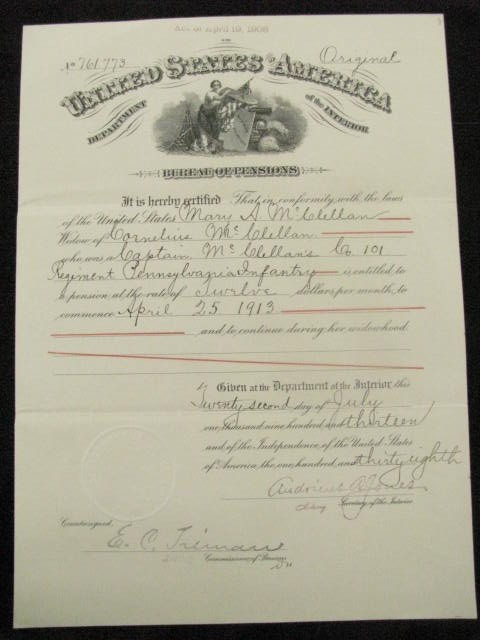 Act of April 19, 1908
No 761,773
Original
UNITED STATES OF AMERICA
DEPARTMENT of the INTERIOR
BUREAU OF PENSIONS
It is hereby certified That in conformity with the laws
of the United States Mary A. McClellan
Widow of Cornelius McClellan
who was a Captain McClellan's Co. 101
Regiment Pennsylvania Infantry is entitled to
a pension at the rate of Twelve dollars per month, to
commence April 25 1913
and to continue during her widowhood
Given at the Department of the Interior this
Twenty second day of July
one thousand nine hundred and thirteen
and of the Independence of the United States
of America the one hundred and thirty eighth
Andrieus A. Jones
Acting Secretary of the Interior
Countersigned,
E. C. Tieman
Commissioner of Pensions